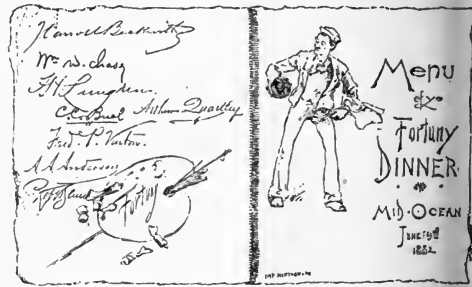 J Carroll Beckwith
Wm M. Chase
C.C. Buel Arthur Quartley
Fred. P. Vinton
A A Anderson
Fortuny
Menu
&c
Fortuny
DINNER
MID-OCEAN
JUNE
1882